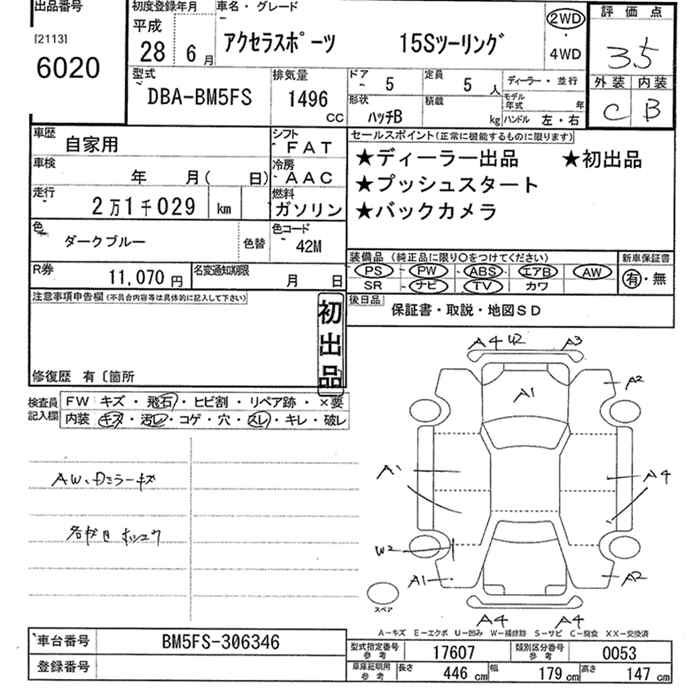 出品番号
[2113]
6020
初度登録年月
平成
28 6月
車名・グレード
アクセラスポーツ 15Sツーリング
2WD
・
4WD
評価点
3.5
外装 内装
C B
型式
DBA-BM5FS
排気量
1496
CC
ドア
5
定員
5 人
形状
ハッチB
積載
kg
ディーラー・並行
モデル年式 年
ハンドル 左・右
車歴
自家用
シフト
FAT
車検
年 月( 日)
冷房
AAC
走行
2万1千029 km
燃料
ガソリン
色
ダークブルー
色替
色コード
42M
R券
11,070 円
名変通知期限
月 日
セールスポイント(正常に機能するものに限ります)
★ディーラー出品 ★初出品
★プッシュスタート
★バックカメラ
装備品 (純正品に限り○をつけてください)
PS・PW・ABS・エアB・AW
SR ナビ・TV カワ
新車保証書
有・無
後日品
保証書・取説・地図SD
注意事項申告欄(不具合内容等は具体的に記入して下さい)
初出品
修復歴 有〔箇所
検査員記入欄
FW キズ・飛石・ヒビ割・リペア跡・×要
内装 キズ・汚レ・コゲ・穴・スレ・キレ・破レ
AW、Dミラーキズ
A4 W2 A3
A2
A1
A1
A4
W2
A1
A2
A4 A4
スペア
A-キズ E-エクボ U-凹み W-補修跡 S-サビ C-腐食 XX-交換済
車台番号 BM5FS-306346
登録番号
型式指定番号 参考 17607
類別区分番号 参考 0053
車庫証明用 参考 長さ 446 cm 幅 179 cm 高さ 147 cm